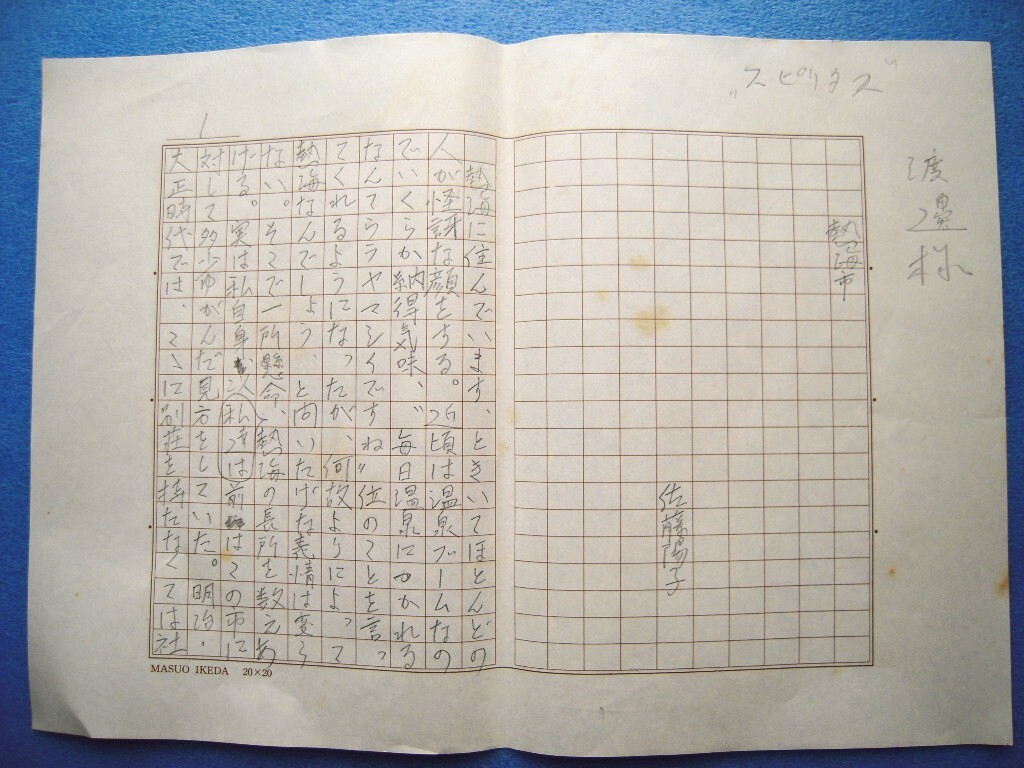 "スピリタス"
渡邉様
熱海市
佐藤陽子
1
熱海に住んでいます、ときいてほとんどの
人が怪訝な顔をする。近頃は温泉ブームなの
でいくらか納得気味、"毎日温泉にかかれる
なんてうラヤマシイですね"位のことを言っ
てくれるようになったが、何故よりによって
熱海なんでしょう、と問いたげな表情は変ら
ない。そこで一所懸命、熱海の長所を数えあ
げる。実は私自身、以前はこの市に
私達は
対して多少ゆがんだ見方をしていた。明治・
大正時代では、ここに別荘を持たなくては社
MASUO IKEDA 20×20